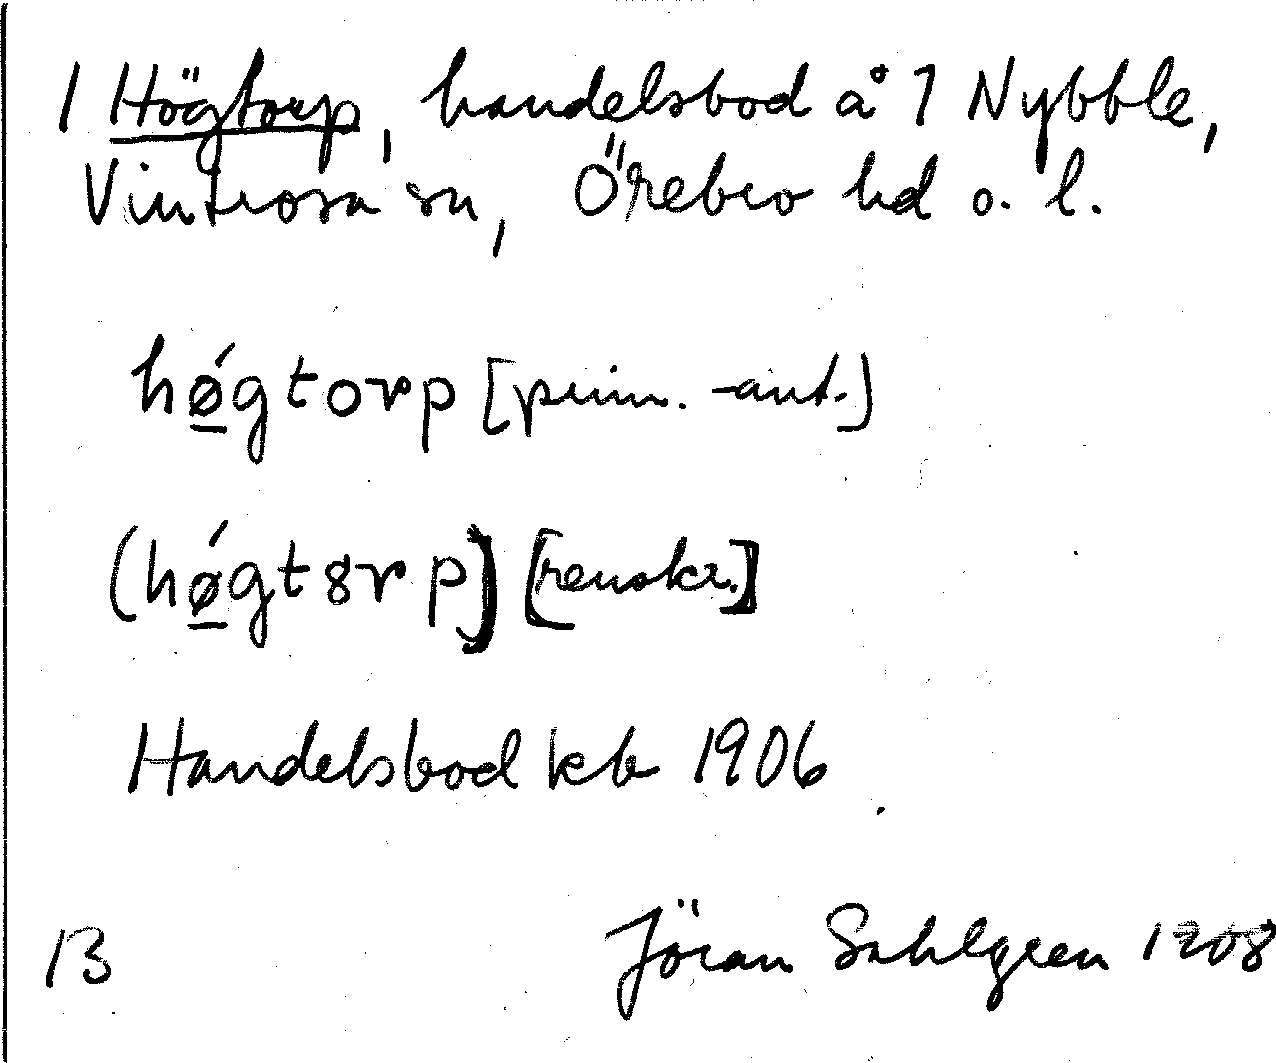 1 Högtorp, handelsbod å 1 Nybble,
Vintrosa sn, Örebro hd o. l.
hǿ̲gtorp [prim. -ant.]
(hǿ̲gt8rp) [renskr.]
Handelsbod kb 1906
13 Jöran Sahlgren 1908